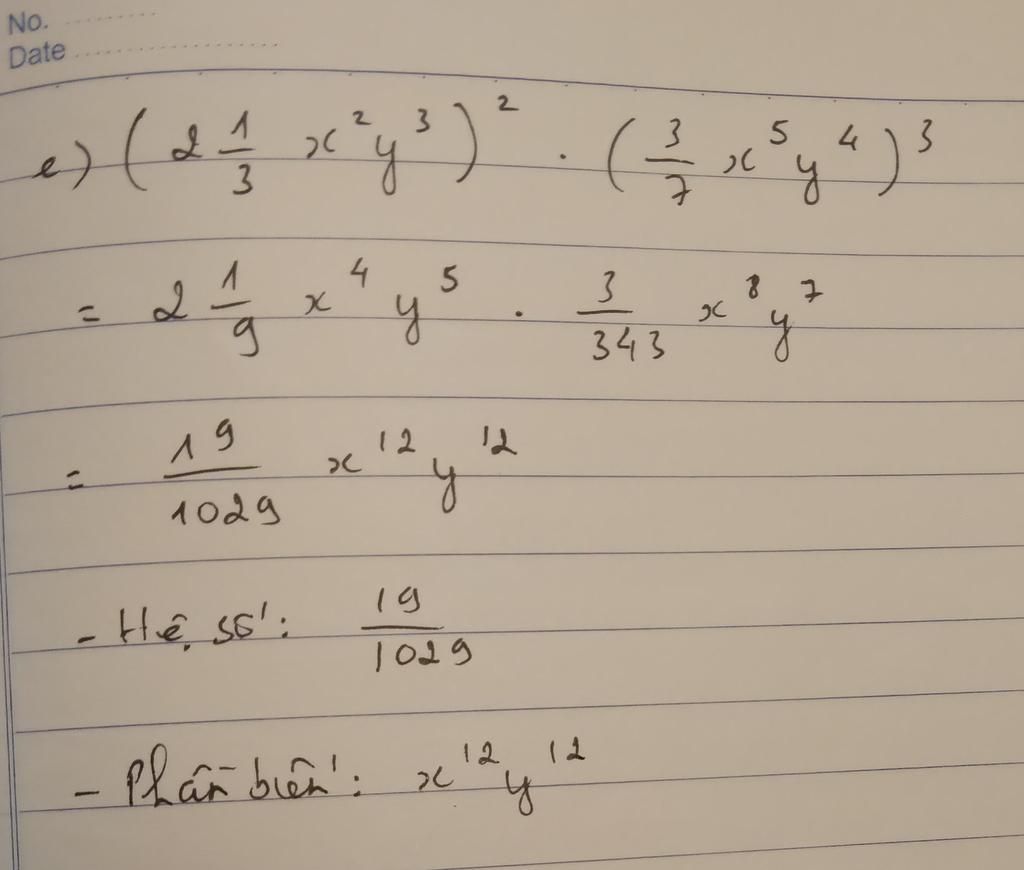 No.
Date
e) (2 1/3 x²y³)² . (3/7 x⁵y⁴)³
= 2 1/9 x⁴y⁵ . 3/343 x⁸y⁷
= 19/1029 x¹²y¹²
- Hệ số: 19/1029
- Phần biến: x¹²y¹²